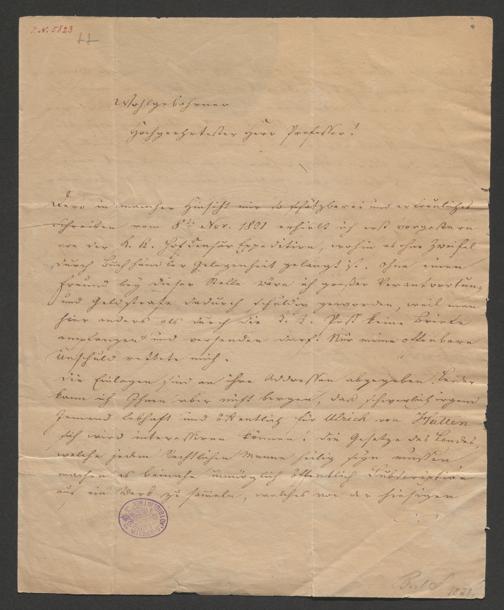 I. N. 5823
Wohlgebohrner
Hochgeehrtester Herr Professor!
Dero in mancher Hinsicht mir so schätzbares und erfreuliches
Schreiben vom 8ten Nov. 1801 erhielt ich erst vorgestern
von der K. K. Hofcensur Expedition, wohin es ohne Zweifel
durch Buchhändler Gelegenheit gelangt ist. Ohne einen
Freund bey dieser Stelle wäre ich großer Verantwortung
und Geldstrafe dadurch schuldig geworden, weil man
hier anders als durch die K. K. Post keine Briefe
empfangen und versenden darf. Nur meine offenbare
Unschuld rettete mich.
Die Einlagen sind an ihre Addressen abgegeben. Leider
kann ich Ihnen aber nicht bergen, daß schwerlich irgend
Jemand lebhaft und öffentlich für Ulrich von Hutten
sich wird interessiren können; die Gesetze des Landes,
welche jedem rechtlichen Manne heilig seyn müssen,
machen es beinahe unmöglich öffentlich Subscription
auf ein Werk zu sammeln, welches von der hiesigen